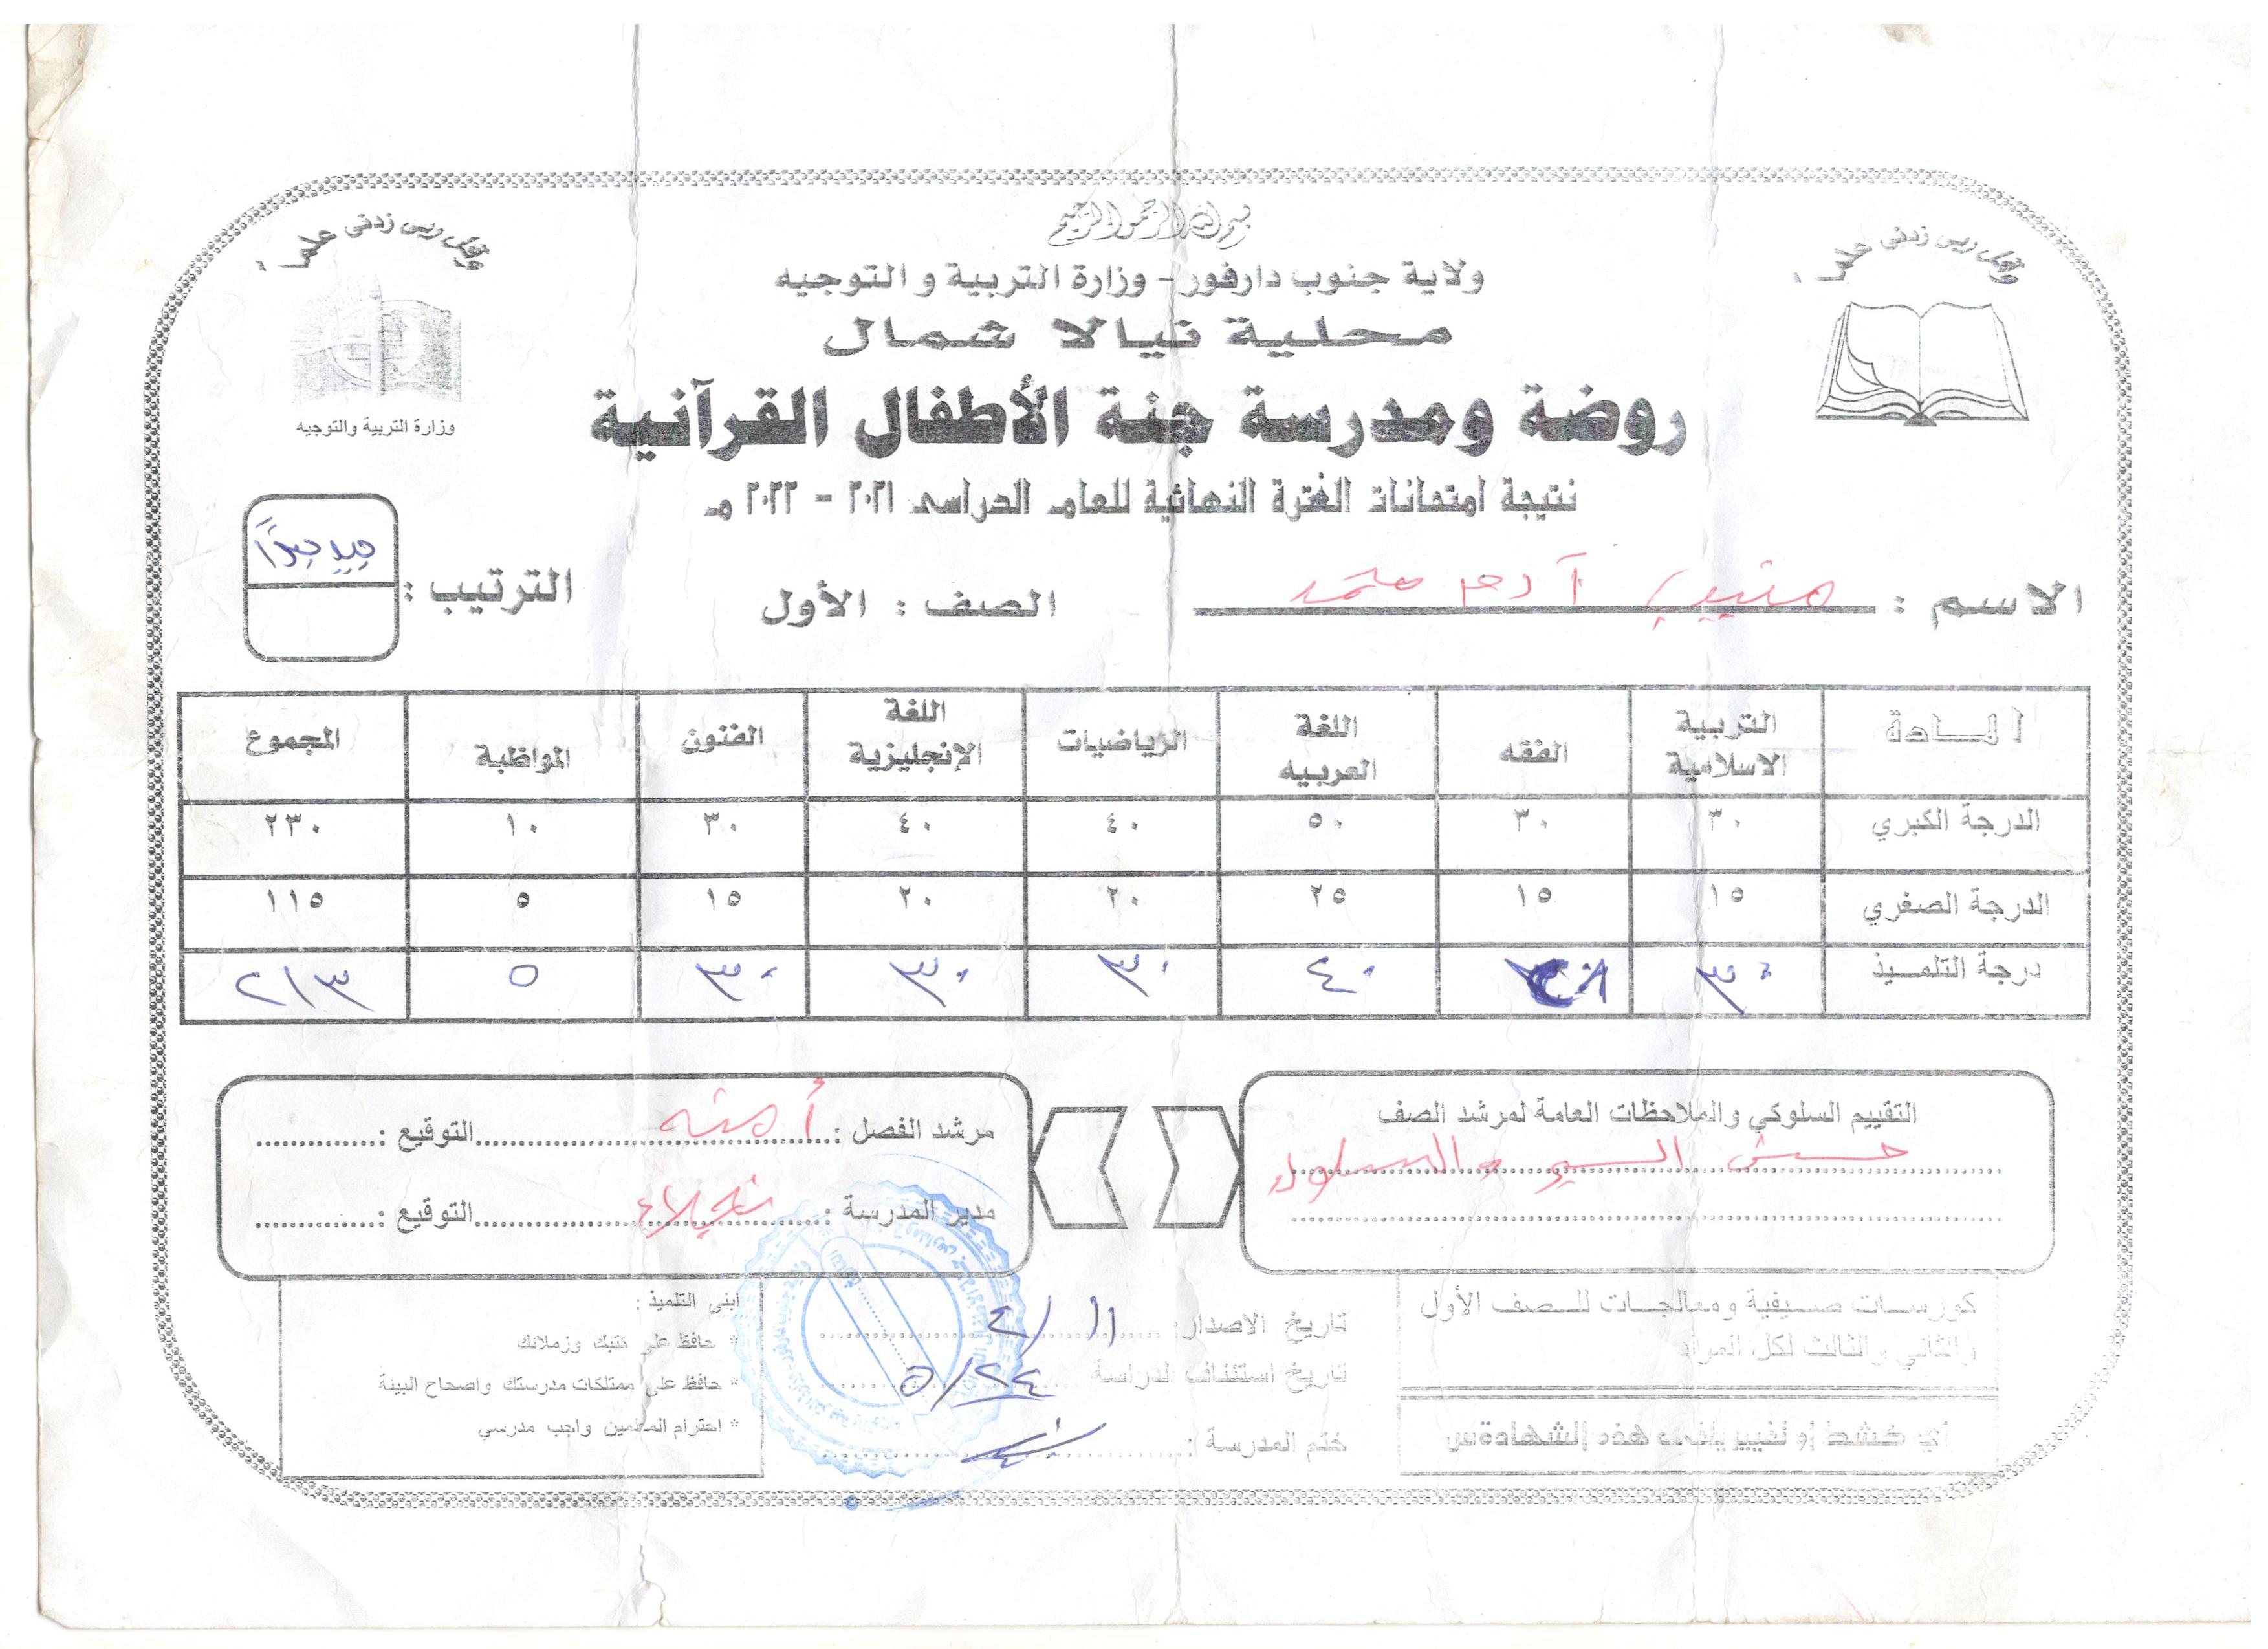 بسم الله الرحمن الرحيم
وقل ربي زدني علما
وقل ربي زدني علما
ولاية جنوب دارفور - وزارة التربية و التوجيه
محلية نيالا شمال
وزارة التربية والتوجيه
روضة ومدرسة جنة الأطفال القرآنية
نتيجة امتحانات الفترة النهائية للعام الدراسي ٢٠٢١ - ٢٠٢٢ م
الاسم : منيب آدم محمد الصف : الأول الترتيب : جيد جداً
المادة التربية الاسلامية الفقه اللغة العربيه الرياضيات اللغة الإنجليزية الفنون المواظبة المجموع
الدرجة الكبري ٣٠ ٣٠ ٥٠ ٤٠ ٤٠ ٣٠ ١٠ ٢٣٠
الدرجة الصغري ١٥ ١٥ ٢٥ ٢٠ ٢٠ ١٥ ٥ ١١٥
درجة التلميذ ٣٠ ٤٠ ٣٠ ٣٠ ٣٠ ٥ ٢١٣
التقييم السلوكي والملاحظات العامة لمرشد الصف
حسن السير والسلوك
مرشد الفصل : أمنه التوقيع :
مدير المدرسة : نجلاء التوقيع :
كورسات صيفية ومعالجات للصف الأول
والثاني والثالث لكل المواد
أي كشط أو تغيير يلغي هذه الشهادة
تاريخ الاصدار: ١١/٤
تاريخ استئناف الدراسة ٢٤/٥
ختم المدرسة :
ابنى التلميذ :
* حافظ على كتبك وزملائك
* حافظ على ممتلكات مدرستك واصحاح البيئة
* احترام المعلمين واجب مدرسي